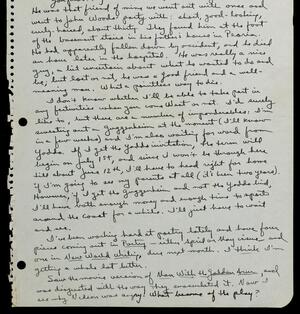 He was that friend of mine we went out with once and
went to John Woods' party with: short, good-looking,
curly haired, about thirty. They found him at the foot
of the basement stairs in his father's house in Peoria.
He had apparently fallen down by accident, and he died
an hour later in the hospital. He was really a nice
guy, a bit uncertain about what he wanted to do and
be, but lost or not, he was a good friend and a well-
meaning man. What a pointless way to die.
I don't know whether I'll be able to take part in
any festivities when you come West or not. I'd surely
like to, but there are a number of imponderables. I'm
sweating out a Guggenheim at the moment (I'll know
in a few weeks) and I'm also waiting for word from
Yaddo. If I get the Yaddo invitation, the term will
begin on July 1st, and since I won't be through here
till about June 12th, I'll have to head right for home
if I'm going to see my parents at all (it's been two years).
However, if I get the Guggenheim and not the Yaddo bid,
I'll have both enough money and enough time to apate
around the Coast for a while. I'll just have to wait
and see.
I've been working hard at poetry lately and have four
pieces coming out in Poetry — either April or May issue — and
one in New World Writing, due next month. I think I'm
getting a whole lot better.
Saw the movie version of Man With the Golden Arm, and
was disgusted with the way they eviscerated it. Now I
see why Nelson was angry! What became of the play?